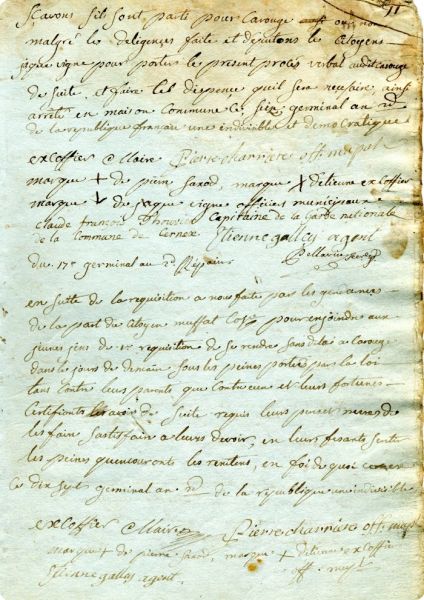 11
scavons s'ils sont parti pour carouge ou non
malgré les diligences faite et deputons le citoyens
jaque vigne pour porter le present procés verbal audit carouge
de suite et faire les depence quil sera necesaire, ainsi
arreté en maison commune ce seize germinal an 2d
de la republique français une indivisible et democratique
excoffier Maire Pierre charriere off. muni pal
marque + de pierre saxod, marque + d'etienne excoffier
marque de jaque vigne officiers municipaux
claude françois Capitaine de la Garde nationale
de la commune de Cernex Etienne gallay agent
du 17e germinal au 2d
en suitte de la requisition a nous faite par les gendarmes
de la part du citoyen mussat pour enjoindre aux
jeunes gens de 1re requisition de se rendre sans delai a carouge
dans le jour de demain sous les peines portées par la loi
tans contre leurs parents que contre eux et leurs fortunes
Certifions de suite requis leurs peres meres de
les faire satisfaire a leurs devoir, en leur fesants sentir
les peines quencouronts les en foi de quoi cernex
ce dix sept germinal an 2d de la republique une indivisible
excoffier Maire Pierre charriere off. mu
marque + de pierre saxod, marque + d'etienne excoffier
Etienne gallay agent. off. mu